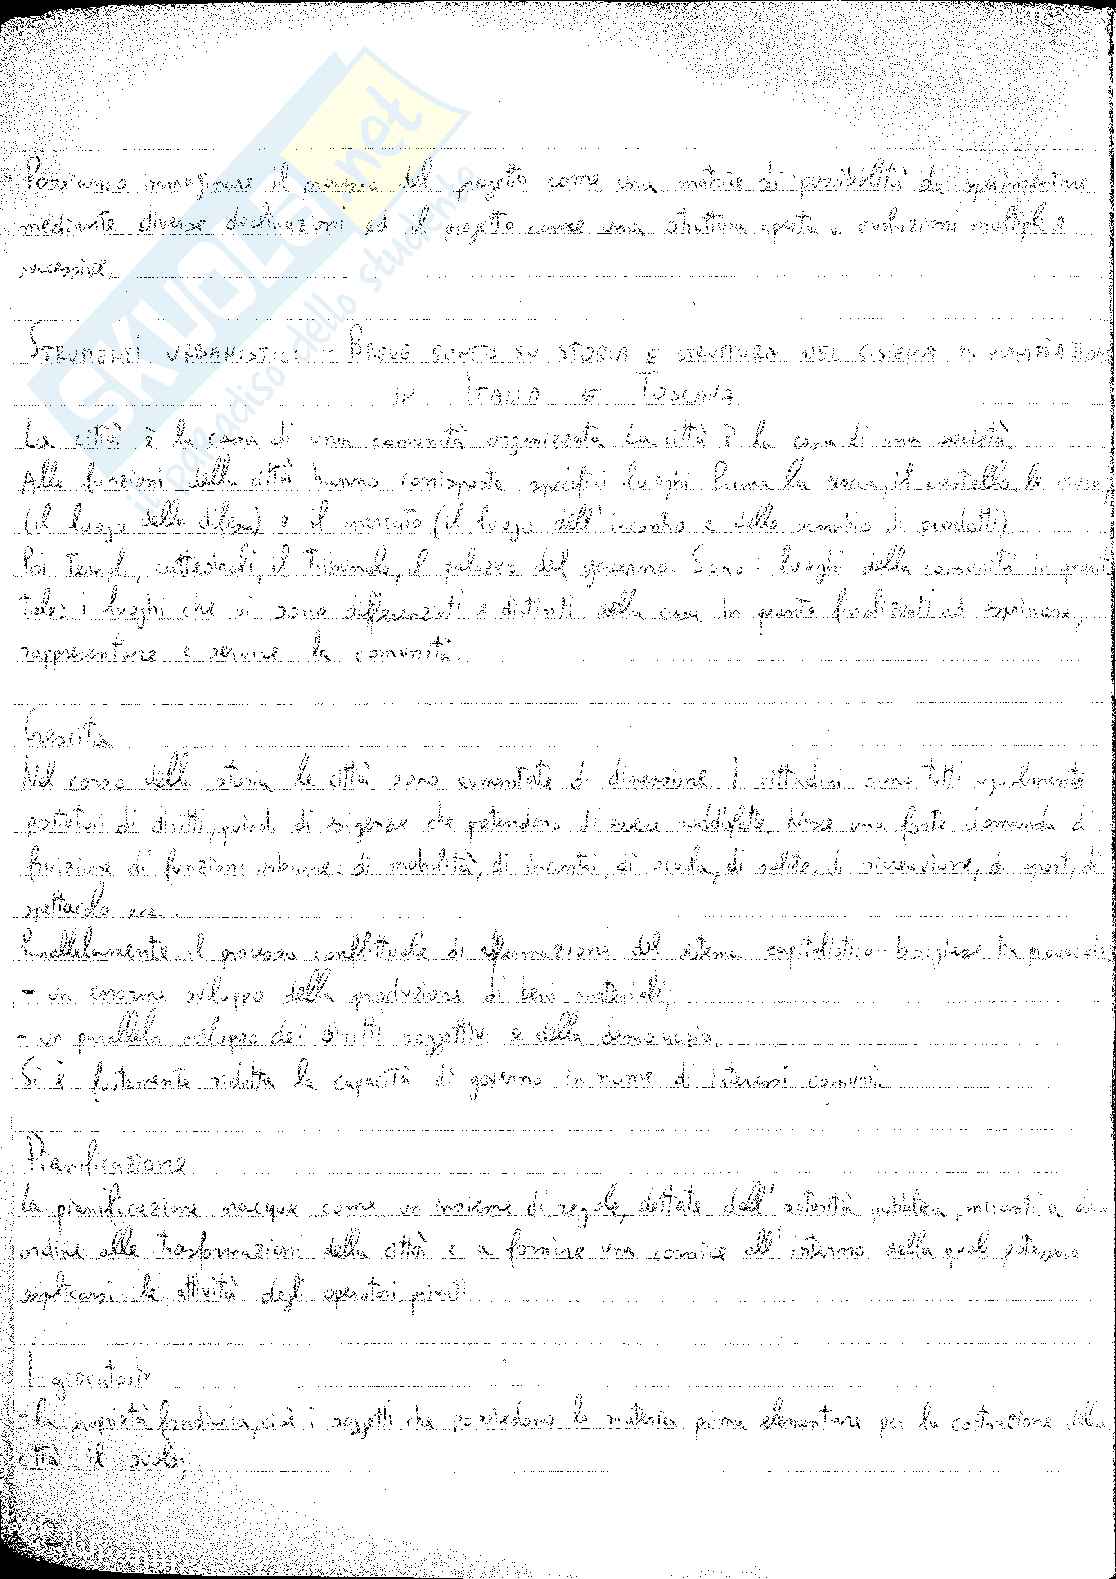 Possiamo immaginare il masses del progetto come una matrice di possibilità da sperimentare
mediante diverse declinazioni ed il progetto come una struttura aperta a evoluzioni multiple e
successive.
STRUMENTI URBANISTICI - BREVE SU STORIA E STRUTTURA DEL SISTEMA DI PIANIFICAZIONE
IN ITALIA E TOSCANA
La città è la casa di una comunità organizzata. La città è la casa di una società.
Alle funzioni della città hanno corrisposto specifici luoghi. Prima la il castello, le mura
(il luogo della difesa) e il mercato (il luogo dell'incontro e dello scambio di prodotti)
Poi templi, cattedrali, il tribunale, il palazzo del governo. Sono i luoghi della comunità in quanto
tale: i luoghi che si sono differenziati e distinti dalla casa in quanto finalizzati ad esprimere,
rappresentare e servire la comunità.
Crescita
Nel corso della storia le città sono aumentate di dimensione. I cittadini sono tutti ugualmente
portatori di diritti, quindi di esigenze che pretendono di essere soddisfatte. Nasce una forte domanda di
fruizione di funzioni urbane: di mobilità, di incontri, di scuola, di salute, di ricreazione, di sport, di
spettacolo ecc.
Parallelamente il processo conflittuale di affermazione del sistema capitalistico-borghese ha provocato
- un enorme sviluppo della produzione di beni materiali;
- un parallelo sviluppo dei diritti soggettivi e della democrazia.
Si è fortemente ridotta la capacità di governo in nome di interessi comuni.
Pianificazione
La pianificazione nacque come un insieme di regole, dettate dall'autorità pubblica, miranti a dare
ordine alle trasformazioni della città e a fornire una cornice all'interno della quale potessero
esplicarsi le attività degli operatori privati.
I giocatori
- la proprietà fondiaria, cioè i soggetti che possiedono la materia prima elementare per la costruzione della
città: il suolo;
SKUOLA.net
il paradiso dello studente